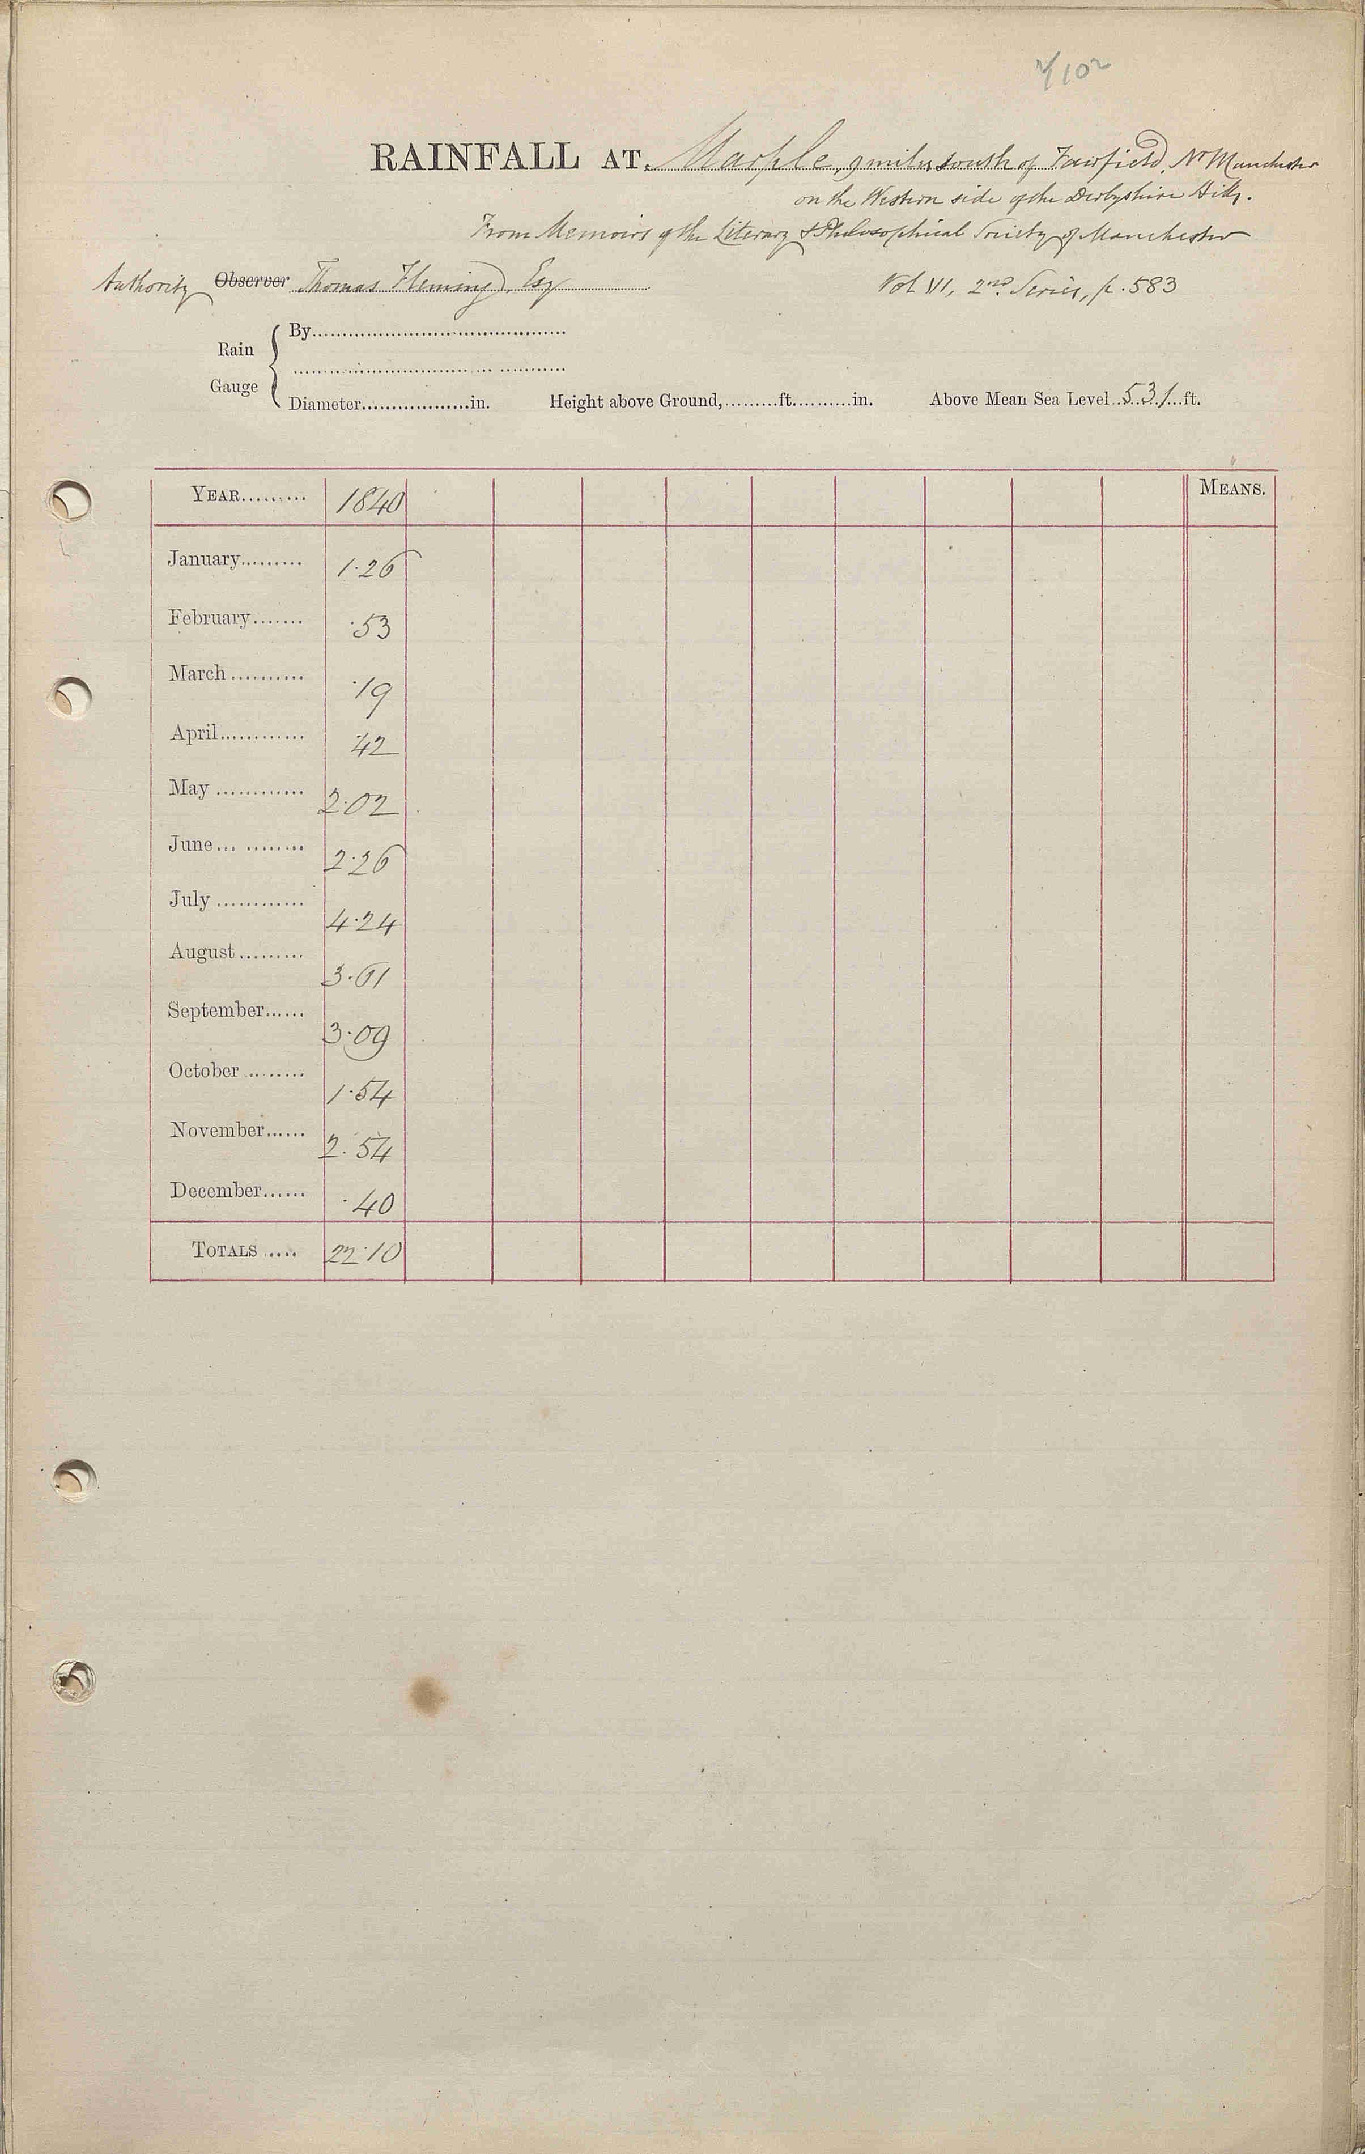 2/102
RAINFALL AT. Marple, 9 miles south of Fairfield, Nr Manchester
on the Western side of the Derbyshire Hills.
From Memoirs of the Literary & Philosophical Society of Manchester
Authority Observer Thomas Fleming, Esq Vol VI, 2nd Series, p. 583
Rain Gauge { By
Diameter in. Height above Ground, ft. in. Above Mean Sea Level 531 ft.
YEAR 1840 MEANS.
January 1.26
February .53
March .19
April .42
May 2.02
June 2.26
July 4.24
August 3.61
September 3.09
October 1.54
November 2.54
December .40
TOTALS 22.10